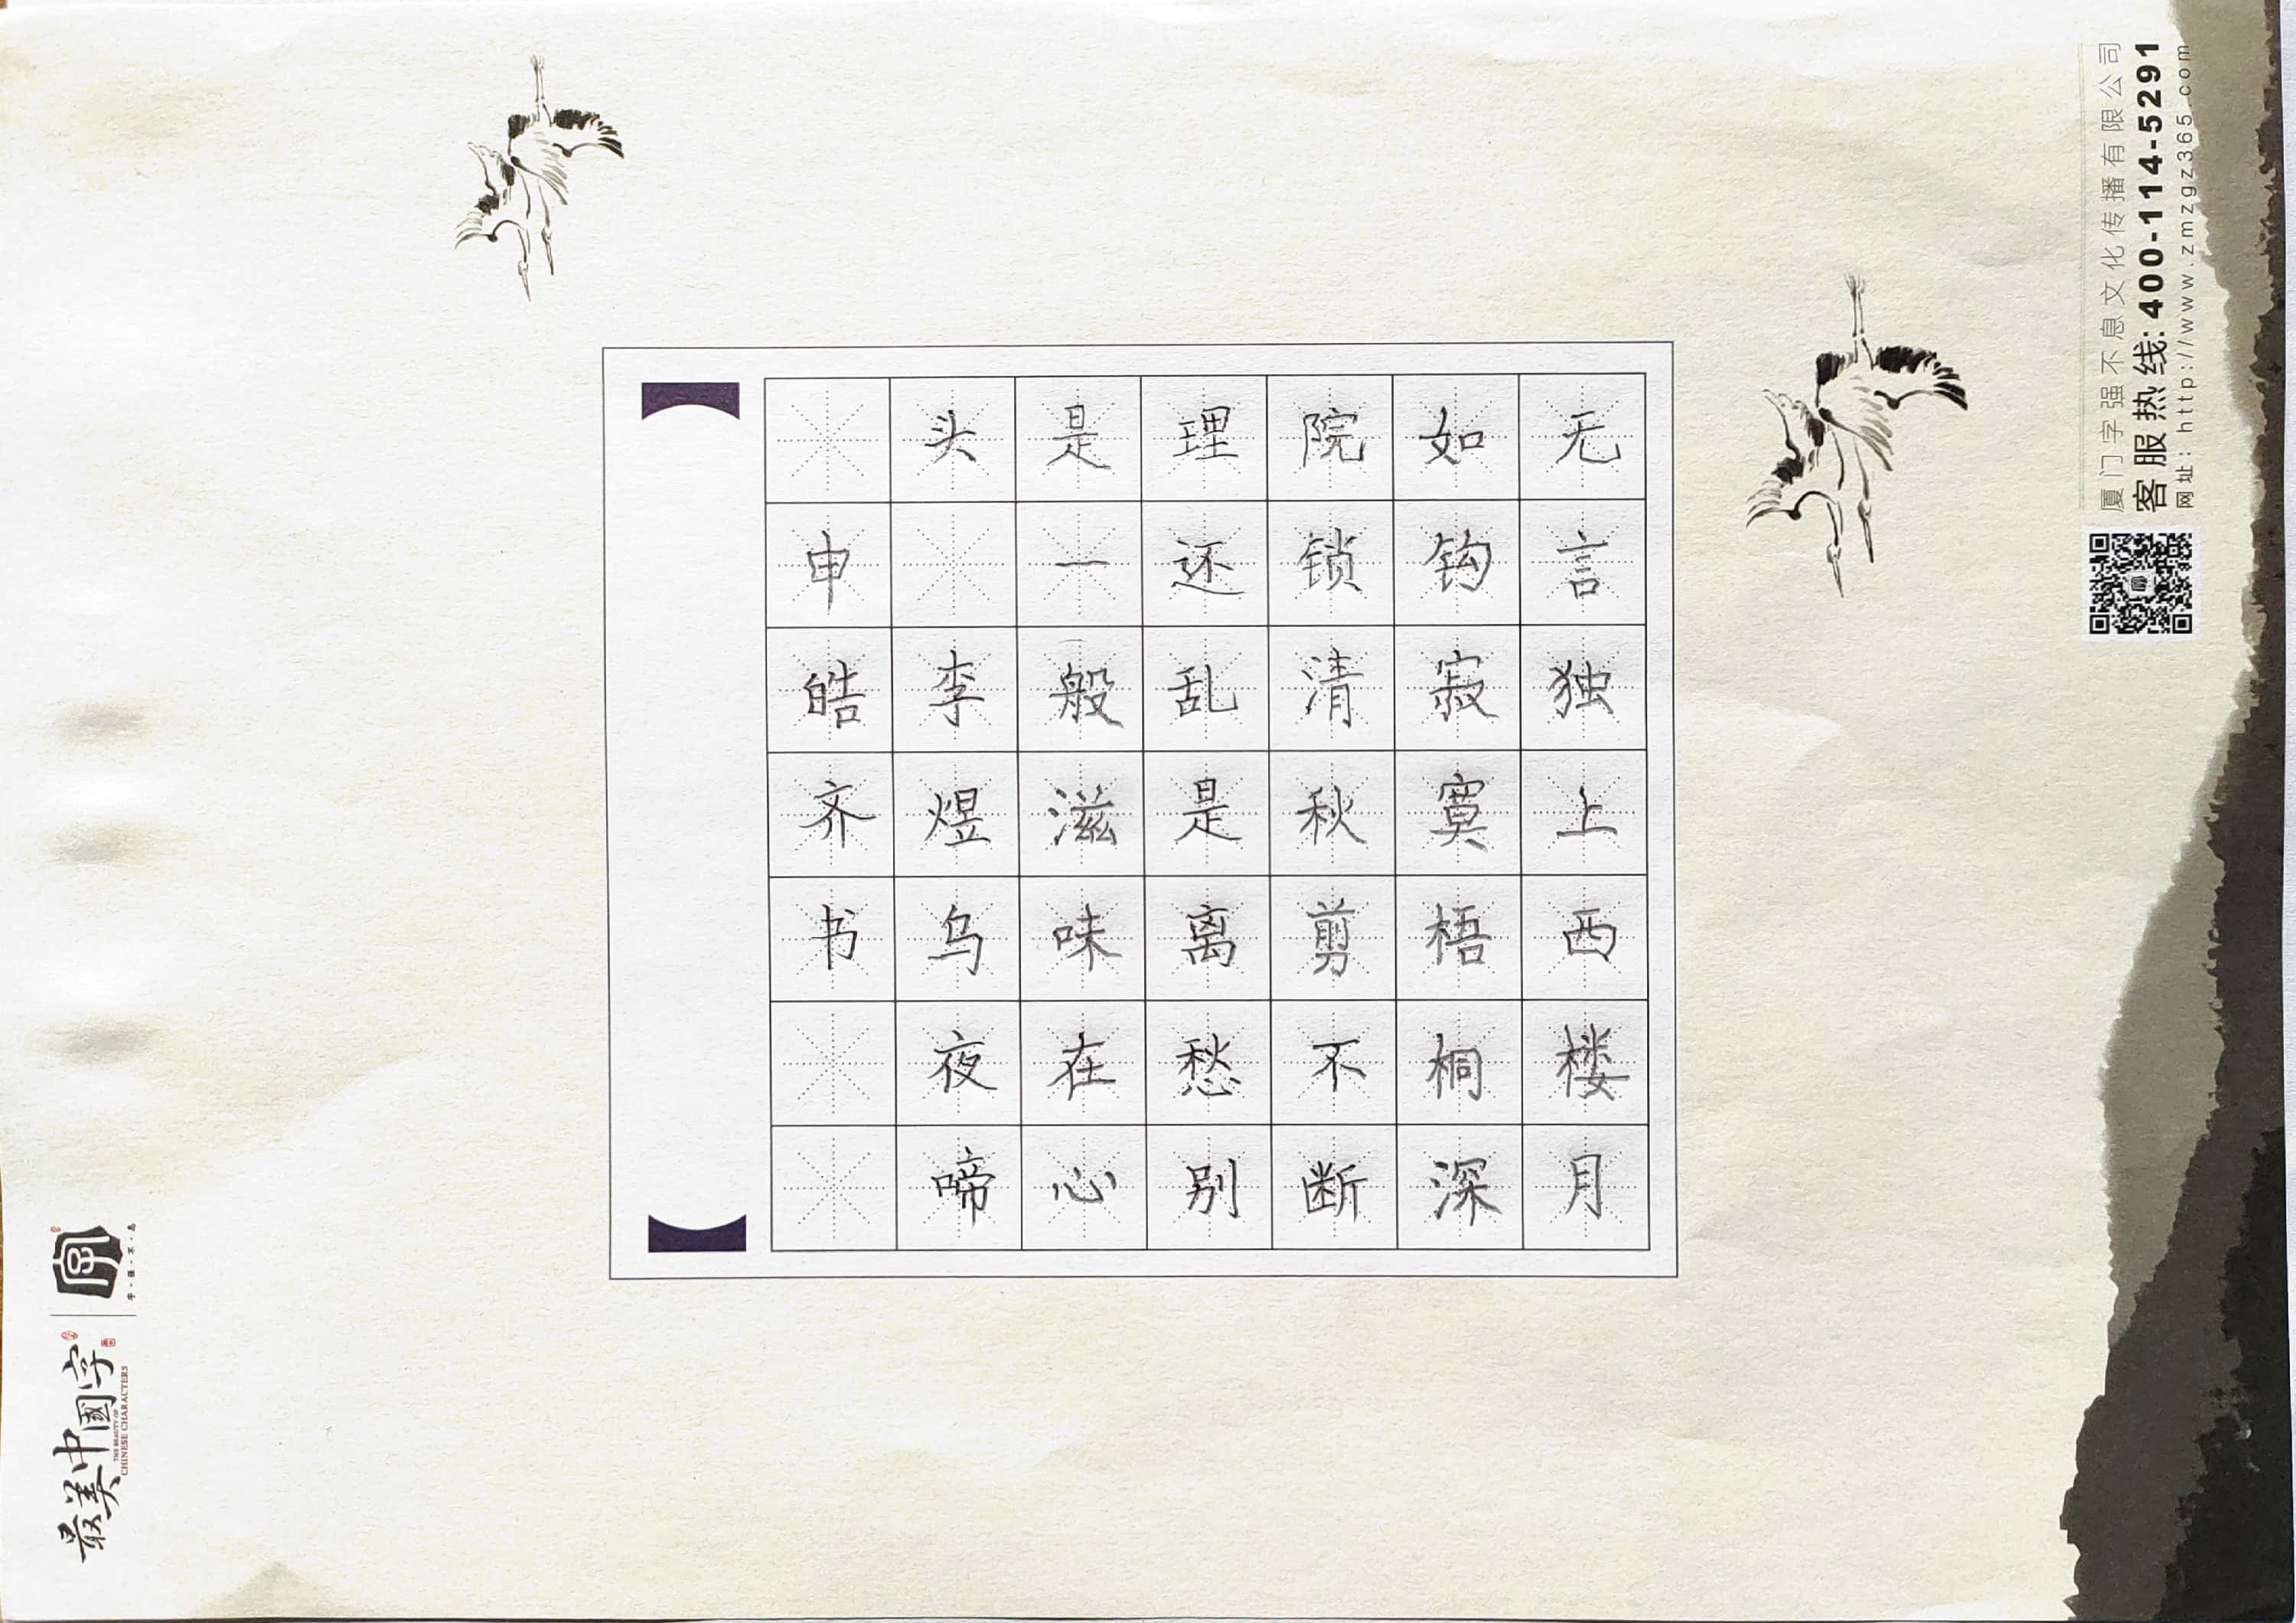 无言独上西楼月
如钩寂寞梧桐深
院锁清秋剪不断
理还乱是离愁别
是一般滋味在心
头 李煜乌夜啼
申皓齐书
厦门字强不息文化传播有限公司
客服热线:400-114-5291
网址：http://www.zmzgz365.com
字·强·不·息
最美中國字
THE BEAUTY OF
CHINESE CHARACTERS